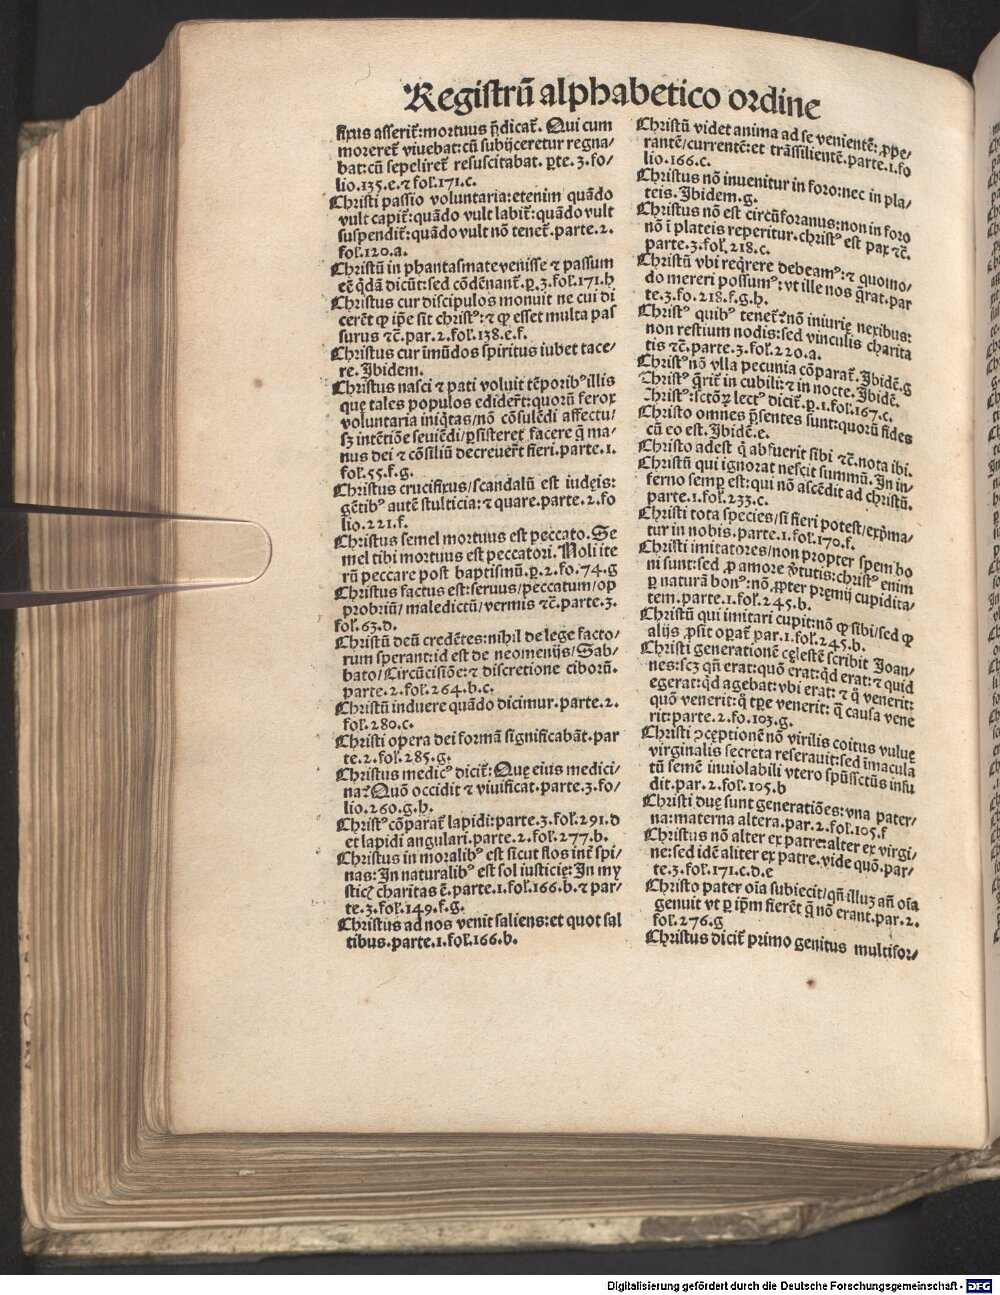 Registrũ alphabetico ordine
fixus asserit̃: mortuus p̃dicat̃. Qui cum
moreret̃ viuebat: cũ subijceretur regna/
bat: cũ sepeliret̃ resuscitabat. ꝑte. 3. fo/
lio. 135. e. ⁊ fol. 171. c.
Christi passio voluntaria: etenim quãdo
vult capit̃: quãdo vult labit̃: quãdo vult
suspendit̃: quãdo vult nõ tenet̃. parte. 2.
fol. 120. a.
Christũ in phantasmate venisse ⁊ passum
eẽ q̃dã dicũt: sed cõdẽnant̃. ꝑ. 3. fol. 171. h
Christus cur discipulos monuit ne cui di
cerẽt ꝙ ip̃e sit christꝰ: ⁊ ꝙ esset multa pas
surus ⁊c̃. par. 2. fol. 138. e. f.
Christus cur ĩmũdos spiritus iubet tace/
re. Ibidem.
Christus nasci ⁊ pati voluit tẽporibꝰ illis
quę tales populos edidert̃: quorũ ferox
voluntaria iniq̃tas / nõ cõsulẽdi affectu /
sꝫ intẽtiõe seuiẽdi / ꝑsisteret̃ facere q̃ ma/
nus dei ⁊ cõsiliũ decreuer̃t fieri. parte. 1.
fol. 55. f. g.
Christus crucifixus / scandalũ est iudęis:
gẽtibꝰ autẽ stulticia: ⁊ quare. parte. 2. fo
lio. 221. f.
Christus semel mortuus est peccato. Se
mel tibi mortuus est peccatori. Noli ite
rũ peccare post baptismũ. ꝑ. 2. fo. 74. g
Christus factus est: seruus / peccatum / op
probriũ / maledictũ / vermis ⁊c̃. parte. 3.
fol. 63. d.
Christũ deũ credẽtes: nihil de lege facto/
rum sperant: id est de neomenijs / Sab/
bato / Circũcisiõe: ⁊ discretione ciborũ.
parte. 2. fol. 264. b. c.
Christũ induere quãdo dicimur. parte. 2.
fol. 280. c.
Christi opera dei formã significabãt. par
te. 2. fol. 285. g.
Christus medicꝰ dicit̃: Quę eius medici/
na? Quõ occidit ⁊ viuificat. parte. 3. fo/
lio. 260. g. h.
Christꝰ cõparat̃ lapidi: parte. 3. fol. 291. d
et lapidi angulari. parte. 2. fol. 277. b.
Christus in moralibꝰ est sicut flos int̃ spi/
nas: In naturalibꝰ est sol iusticię: In my
sticę charitas ẽ. parte. 1. fol. 166. b. ⁊ par/
te. 3. fol. 149. f. g.
Christus ad nos venit saliens: et quot sal
tibus. parte. 1. fol. 166. b.
Christũ videt anima ad se venientẽ: ꝓpe/
rantẽ / currentẽ: et trãssilientẽ. parte. 1. fo
lio. 166. c.
Christus nõ inuenitur in foro: nec in pla/
teis. Ibidem. g.
Christus nõ est circũforanus: non in foro
nõ ĩ plateis reperitur. christꝰ est pax ⁊c̃.
parte. 3. fol. 218. c.
Christũ vbi req̃rere debeamꝰ: ⁊ quomo/
do mereri possumꝰ: vt ille nos q̃rat. par
te. 3. fo. 218. f. g. h.
Christꝰ quibꝰ tenet̃? nõ iniurię nexibus:
non restium nodis: sed vinculis charita
tis ⁊c̃. parte. 3. fol. 220. a.
Christꝰ nõ vlla pecunia cõparat̃. Ibidẽ. g
Christꝰ q̃rit̃ in cubili: ⁊ in nocte. Ibidẽ.
Christꝰ: sctõꝝ lectꝰ dicit̃. ꝑ. 1. fol. 167. c.
Christo omnes p̃sentes sunt: quorũ fides
cũ eo est. Ibidẽ. e.
Christo adest q̃ abfuerit sibi ⁊c̃. nota ibi.
Christũ qui ignorat nescit summũ. In in/
ferno semꝑ est: qui nõ ascẽdit ad christũ.
parte. 1. fol. 233. c.
Christi tota species / si fieri potest / exp̃ma/
tur in nobis. parte. 1. fol. 170. f.
Christi imitatores / non propter spem bo
ni sunt: sed ꝓ amore ṽtutis: christꝰ enim
ꝑ naturã bonꝰ: nõ ꝓpter pręmij cupidita/
tem. parte. 1. fol. 245. b.
Christũ qui imitari cupit: nõ ꝙ sibi / sed ꝙ
alijs ꝓsit optat̃ par. 1. fol. 245. b.
Christi generationẽ cęlestẽ scribit Joan/
nes: scꝫ qñ erat: quõ erat: q̃d erat: ⁊ quid
egerat: q̃d agebat: vbi erat: ⁊ q̃ venerit:
quõ venerit: q̃ tp̃e venerit: q̃ causa vene
rit: parte. 2. fo. 103. g.
Christi ꝯceptionẽ nõ virilis coitus vuluę
virginalis secreta reserauit: sed ĩmacula
tũ semẽ inuiolabili vtero spũssctũs infu
dit. par. 2. fol. 105. b
Christi duę sunt generatiões: vna pater/
na: materna altera. par. 2. fol. 105. f
Christus nõ alter ex patre: alter ex virgi/
ne: sed idẽ aliter ex patre. vide quõ. par/
te. 3. fol. 171. c. d. e
Christo pater oĩa subiecit / qñ illuꝫ añ oĩa
genuit vt ꝑ ip̃m fierẽt q̃ nõ erant. par. 2.
fol. 276. g
Christus dicit̃ primo genitus multifor/
Digitalisierung gefördert durch die Deutsche Forschungsgemeinschaft - DFG